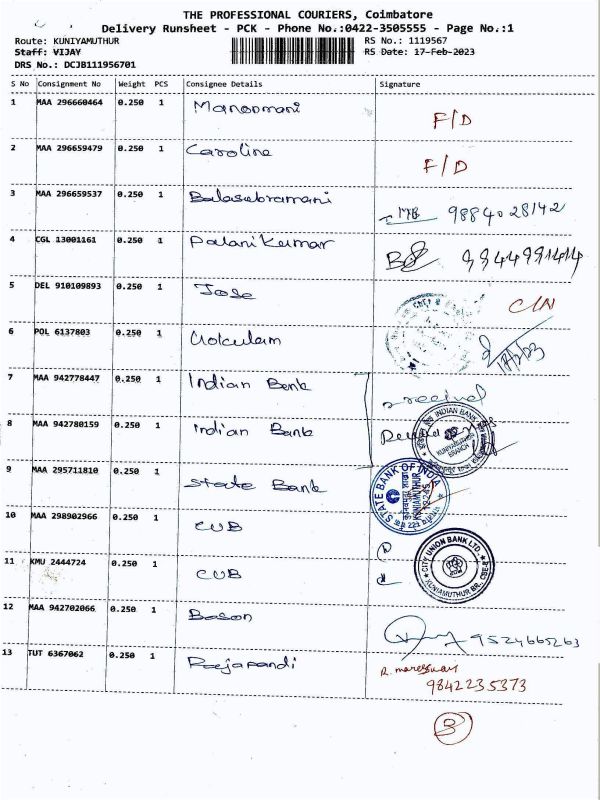 THE PROFESSIONAL COURIERS, Coimbatore
Delivery Runsheet - PCK - Phone No.:0422-3505555 - Page No.:1
Route: KUNIYAMUTHUR RS No.: 1119567
Staff: VIJAY RS Date: 17-Feb-2023
DRS No.: DCJB111956701
S No Consignment No Weight PCS Consignee Details Signature
1 MAA 296660464 0.250 1 Manonmani F/D
2 MAA 296659479 0.250 1 Caroline F/D
3 MAA 296659537 0.250 1 Balasubramani 9884028142
4 CGL 13001161 0.250 1 Palanikumar 9944991414
5 DEL 910109893 0.250 1 Jose
6 POL 6137803 0.250 1 Gokulam 18/2/23
7 MAA 942778447 0.250 1 Indian Bank received
8 MAA 942780159 0.250 1 Indian Bank
INDIAN BANK
KUNIYAMUTHUR
BRANCH
9 MAA 295711810 0.250 1 State Bank
STATE BANK OF INDIA
KUNIAMUTHUR
10 MAA 298902966 0.250 1 CUB
11 KMU 2444724 0.250 1 CUB
CITY UNION BANK LTD.
KUNIAMUTHUR BR, CBE-8
12 MAA 942702066 0.250 1 Bason 9524665263
13 TUT 6367062 0.250 1 Rajapandi R. mareeswari
9842235373